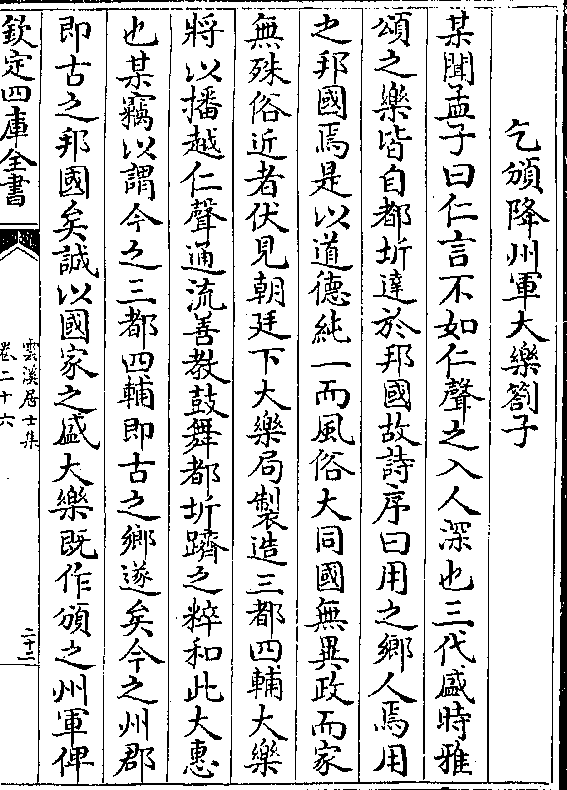 乞頒降州軍大樂劄子
某聞孟子曰仁言不如仁聲之入人深也三代盛時雅
頌之樂皆自都圻達於邦國故詩序曰用之鄉人焉用
之邦國焉是以道德純一而風俗大同國無異政而家
無殊俗近者伏見朝廷下大樂局製造三都四輔大樂
將以播越仁聲通流善教鼓舞都圻躋之粹和此大惠
也某竊以謂今之三都四輔即古之鄉遂矣今之州郡
即古之邦國矣誠以國家之盛大樂既作頒之州軍俾
欽定四庫全書
雲溪居士集
卷二十六
二十二